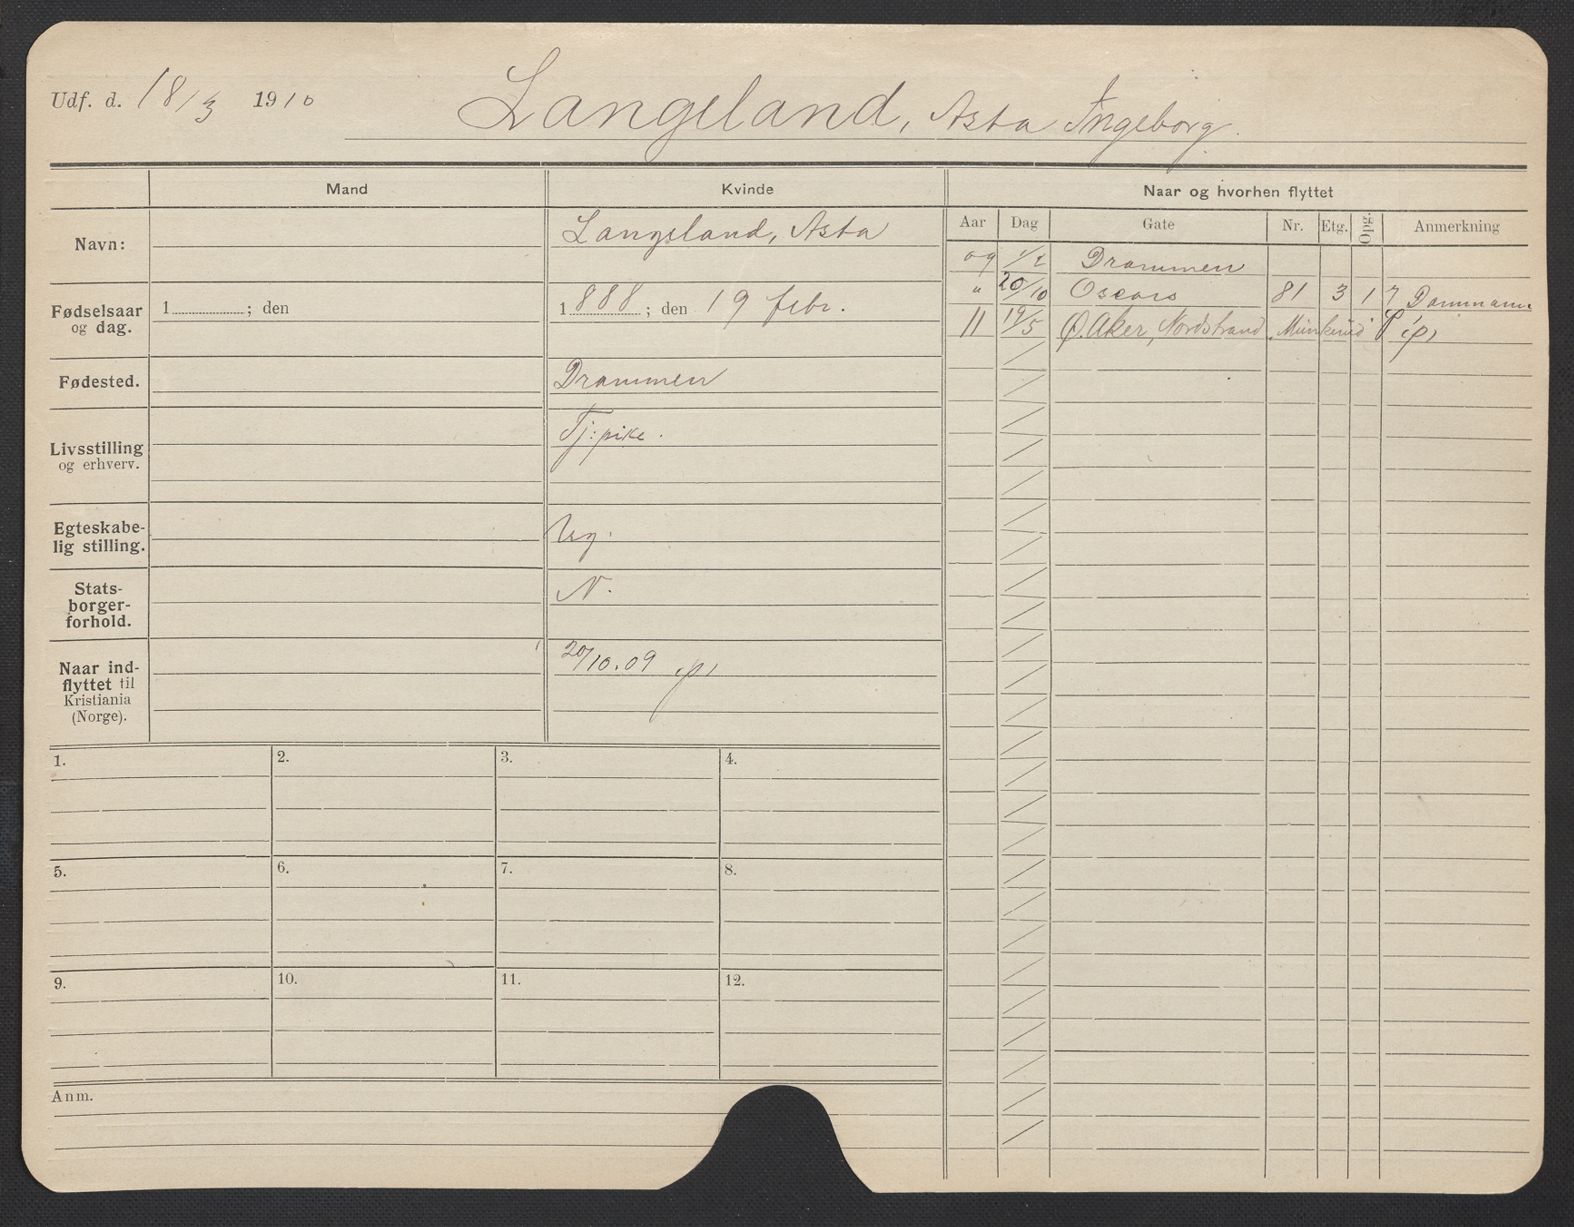 Udf. d. 18/3 1910 Langeland, Asta Ingeborg.
Mand Kvinde Naar og hvorhen flyttet
Aar Dag Gate Nr. Etg. Opg. Anmerkning
Navn: Langeland, Asta
09 1/2 Drammen
" 20/10 Oscars 81 3 1 Dammann
11 19/5 Ø. Aker, Nordstrand
Fødselsaar og dag. 1 ; den 1888 ; den 19 febr.
Fødested. Drammen
Livsstilling og erhverv. Tj: pike.
Egteskabe-
lig stilling. Ug.
Stats-
borger-
forhold. N.
Naar ind-
flyttet til
Kristiania
(Norge). 20/10.09
1. 2. 3. 4.
5. 6. 7. 8.
9. 10. 11. 12.
Anm.